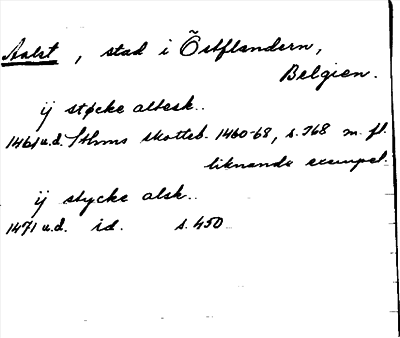 Aalst, stad i Östflandern,
Belgien.
ij støcke altesk..
1461 u.d. Sthms skotteb. 1460-68, s. 768 m. fl.
liknande exempel.
ij stycke alsk..
1471 u.d. id. s. 450